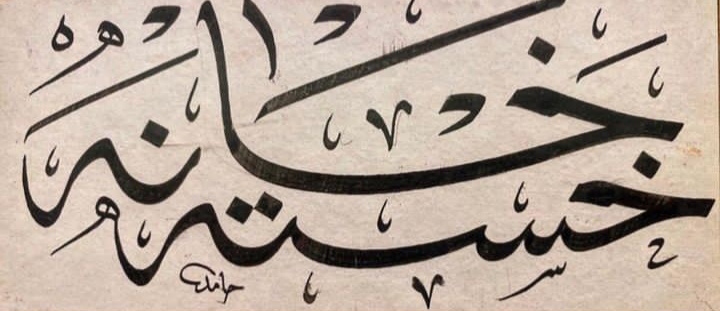 خسته خانه
حامد